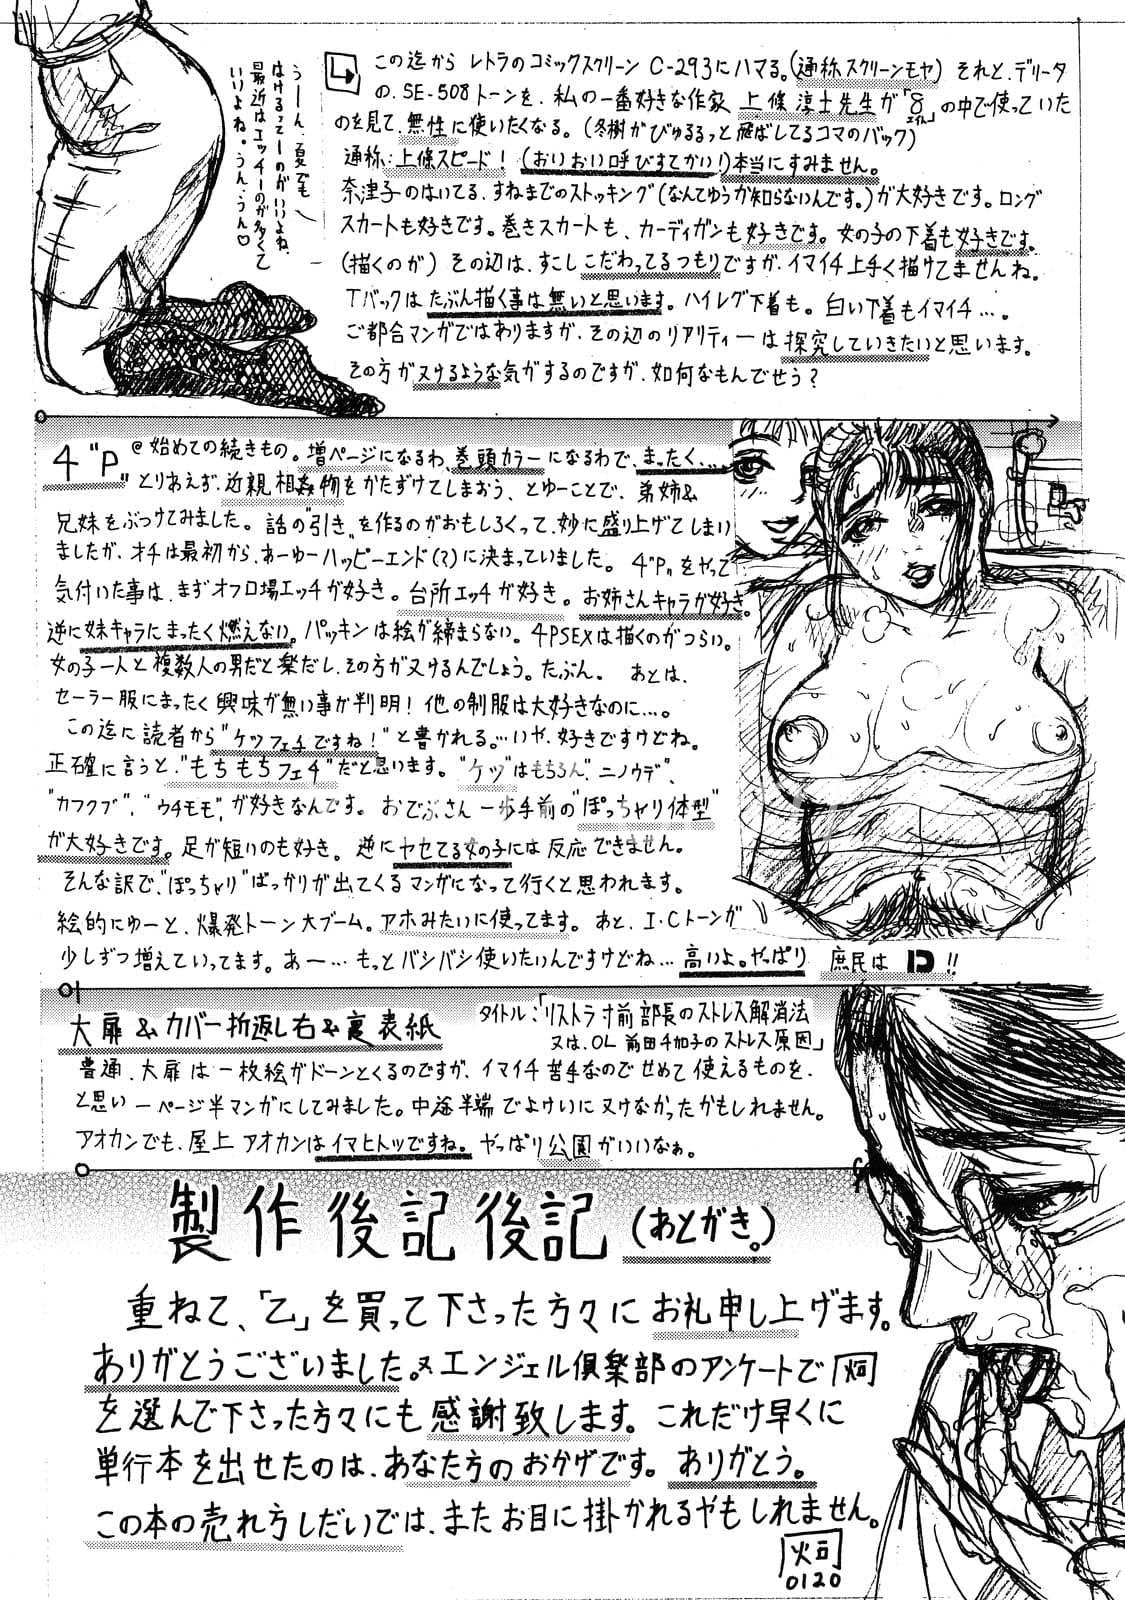 うーーん、夏でも
はけるってーのがいいよね、
最近はエッチーのが多くて
いいよね。うん・うん♡
この迄から レトラのコミックスクリーン C-293にハマる。(通称スクリーンモヤ) それと、デリータ
の、SE-508トーンを、私の一番好きな作家 上條淳士先生が「8」の中で使っていた
エイト
のを見て、無性に使いたくなる。(冬樹がびゅるるっと飛ばしてるコマのバック)
通称:上條スピード! (おいおい呼びすてかい!)本当にすみません。
奈津子のはいてる、すねまでのストッキング(なんてゆうか知らないんです。)が大好きです。ロング
スカートも好きです。巻きスカートも、カーディガンも好きです。女の子の下着も好きです。
(描くのが) その辺は、すこしこだわってるつもりですが、イマイチ上手く描けてませんね。
Tバックはたぶん描く事は無いと思います。ハイレグ下着も。白い下着もイマイチ…。
ご都合マンガではありますが、その辺のリアリティーは探究していきたいと思います。
その方がヌけるような気がするのですが、如何なもんでせう?
4"P" @始めての続きもの。増ページになるわ、巻頭カラーになるわで、まったく…。
とりあえず、近親相姦物をかたずけてしまおう、とゆーことで、弟姉&
兄妹をぶつけてみました。話の"引き"を作るのがおもしろくって、妙に盛り上げてしまい
ましたが、オチは最初から、あーゆーハッピーエンド(?)に決まっていました。4"P"をやって
気付いた事は、まずオフロ場エッチが好き。台所エッチが好き。お姉さんキャラが好き。
逆に妹キャラにまったく燃えない。パッキンは絵が締まらない。4PSEXは描くのがつらい。
女の子一人と複数人の男だと楽だし、その方がヌけるんでしょう。たぶん。 あとは、
セーラー服にまったく興味が無い事が判明!他の制服は大好きなのに…。
この迄に読者から"ケツフェチですね!"と書かれる。…いや、好きですけどね。
正確に言うと、"もちもちフェチ"だと思います。"ケツ"はもちろん、ニノウデ"、
"カフクブ"、"ウチモモ"、が好きなんです。おでぶさん一歩手前の"ぽっちゃり体型"
が大好きです。足が短いのも好き。逆にヤセてる女の子には反応できません。
そんな訳で、"ぽっちゃり"ばっかりが出てくるマンガになって行くと思われます。
絵的にゆーと、爆発トーン大ブーム。アホみたいに使ってます。あと、I・Cトーンが
少しずつ増えていってます。あー…もっとバシバシ使いたいんですけどね…高いよ。やっぱり 庶民は !!
大扉&カバー折返し右&裏表紙 タイトル:「リストラ寸前部長のストレス解消法
又は、OL 前田千加子のストレス原因」
普通、大扉は一枚絵がドーンとくるのですが、イマイチ苦手なのでせめて使えるものを、
と思い一ページ半マンガにしてみました。中途半端でよけいにヌけなかったかもしれません。
アオカンでも、屋上アオカンはイマヒトツですね。やっぱり公園がいいなぁ。
製作後記後記(あとがき。)
重ねて、「乙」を買って下さった方々にお礼申し上げます。
ありがとうございました。又エンジェル倶楽部のアンケートで
を選んで下さった方々にも感謝致します。これだけ早くに
単行本を出せたのは、あなた方のおかげです。ありがとう。
この本の売れ方しだいでは、またお目に掛かれるやもしれません。
0120